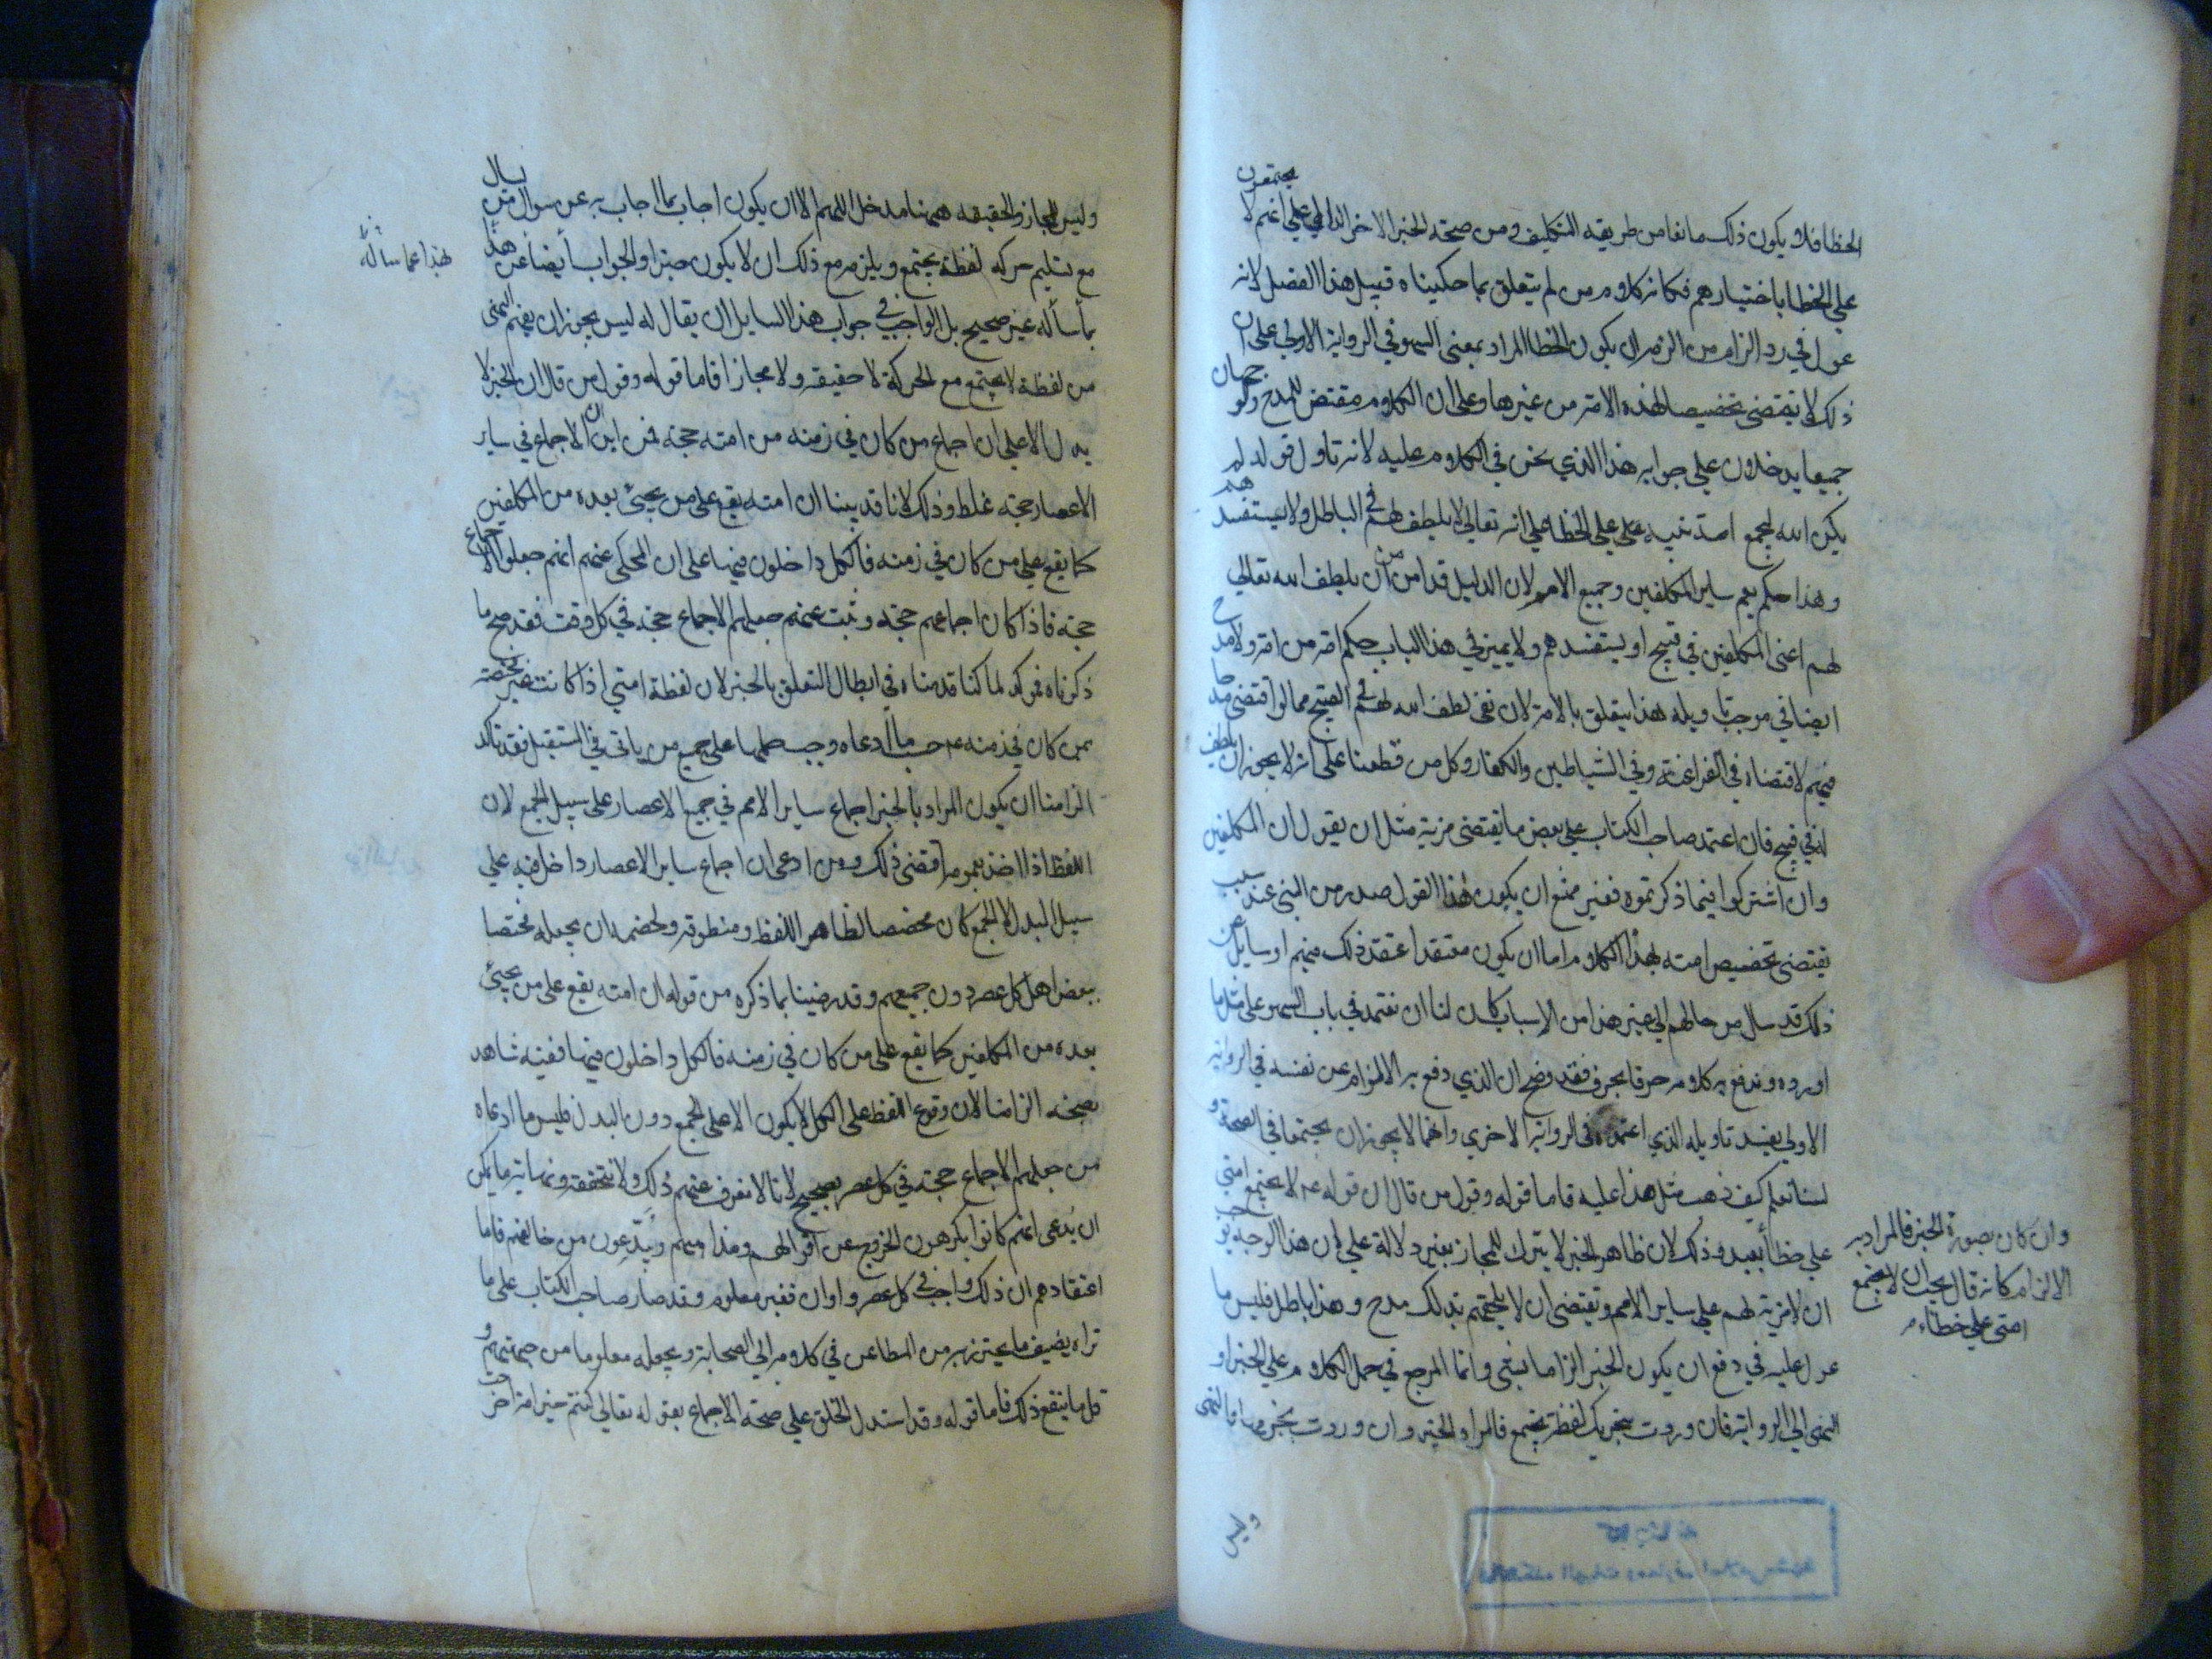 الخطا فلا يكون ذلك مانعا من طريقه التكليف ومن صحة الخبر الاخر الدال علي انهم لا يجتمعون
علي الخطا باختيارهم فكانه كلام من لم يتعلق بما حكيناه قبيل هذا الفصل لانه
عول في رد الزام من الزم ان يكون الخطا المراد بمعنى السهو في الرواية الاولى على ان
ذلك لا يقتضى تخصيصا لهذه الامة من غيرها وعلى ان الكلام مقتض للمدح وللوجهان
جميعا يدخلان علي جوابه هذا الذي نحن في الكلام عليه لانه تاول قوله لم
يكن الله ليجمع امة نبيه علي الخطا علي انه تعالي لا يلطف لهم في الباطل ولا يستفسدهم
وهذا حكم يعم ساير المكلفين وجميع الامم لان الدليل قد امن من ان يلطف الله تعالي
لهم اعنى المكلفين في قبيح او يستفسدهم ولا يميز في هذا الباب حكم امة من امة ولا مدح
ايضا في موجب تاويله هذا يتعلق بالامة لان نفى لطف الله لهم في القبيح مما لو اقتضى مدحا
فيهم لاقتضاه في الفراعنة وفي الشياطين والكفار وكل من قطعنا على انه لا يجوز ان يلطف
له في قبيح فان اعتمد صاحب الكتاب علي بعض ما يقتضى مزية مثل ان يقول ان المكلفين
وان اشتركوا فيما ذكرتموه فغير ممتنع ان يكون هذا القول صدر من النبى عند سبب
يقتضى تخصيص امته بهذا الكلام اما ان يكون معتقدا اعتقد ذلك فيهم او سايل عن
ذلك قد سال من حالهم الي غير هذا من الاسباب كان لنا ان نعتمد في باب السهو على مثل ما
اورده وندفع به كلامه حرفا بحرف فقد وضح ان الذي دفع به الالزام عن نفسه في الرواية
الاولي يفسد تاويله الذي اعتمده في الرواية الاخرى وانهما لا يجوز ان يجتمعا في الصحة و
لسنا نعلم كيف ذهب مثل هذا عليه فاما قوله وقول من قال ان قوله عه لا يجتمع امتى
علي خطا بعيد وذلك لان ظاهر الخبر لا يترك للمجاز بغير دلالة علي ان هذا الوجه يوجب
ان لا مزية لهم علي ساير الامم ويقتضى ان لا يلحقهم بذلك مدح وهذا باطل فليس ما
عول عليه في دفع ان يكون الخبر الزاما بشى وانما المرجع في حمل الكلام علي الخبر او
النهى الي الرواية فان وردت بتحريك لفظة يجتمع فالمراد الخبر وان وردت بجزمها فالنهى
وان كان بصورة الخبر فالمراد به
الالزام كانه قال يجب ان لا يجتمع
امتى علي خطاء م
وليس
وليس للمجاز والحقيقه ههنا مدخل اللهم الا ان يكون اجاب بما اجاب به عن سوال من يسال
مع تسليم حركه لفظة يجتمع ويلزمه مع ذلك ان لا يكون خبرا والجواب أيضا عن هذا
لهذا عما سأله
بما سأله غير صحيح بل الواجب في جواب هذا السايل ان يقال له ليس يجوز ان يفهم النهى
من لفظة لا يجتمع مع الحركة لا حقيقه ولا مجازا فاما قوله وقول من قال ان الخبر لا
يدل الا على ان اجماع من كان في زمنه من امته حجة فمن اين ان الاجماع في ساير
الاعصار حجة غلط وذلك لانا قد بينا ان امته يقع على من يجيئ بعده من المكلفين
كما يقع علي من كان في زمنه فالكل داخلون فيها على ان المحكى عنهم انهم جعلوا الاجماع
حجة فاذا كان اجماعهم حجة وثبت عنهم جعلهم الاجماع حجة في كل وقت فقد صح ما
ذكرناه فموكد لما كنا قدمناه في ابطال التعلق بالخبر لان لفظة امتي اذا كانت غير مختصة
بمن كان في زمنه عه حسب ما ادعاه وجب حملها على جميع من ياتي في المستقبل فقد تاكد
الزامنا ان يكون المراد بالخبر اجماع ساير الامم في جميع الاعصار على سبيل الجمع لان
اللفظ اذا اخذ بعمومه اقتضى ذلك ومن ادعى ان اجماع ساير الاعصار داخل فيه علي
سبيل البدل لا الجمع كان مخصصا لظاهر اللفظ ومنطوقه ولخصمه ان يجعله مختصا
ببعض اهل كل عصر دون جميعهم وقد رضينا بما ذكره من قوله ان امته يقع على من يجيئ
بعده من المكلفين كما يقع على من كان في زمنه فالكل داخلون فيها ففيه شاهد
بصحة الزامنا لان وقوع اللفظ على الكل لا يكون الا على الجمع دون البدل فليس ما ادعاه
من جعلهم الاجماع حجة في كل عصر بصحيح لانا لا نعرف عنهم ذلك ولا نتحققه ونهاية ما يمكن
ان يدعى انهم كانوا يكرهون الخروج عن اقوالهم ومذاهبهم ويبدعون من خالفهم فاما
اعتقادهم ان ذلك واجب في كل عصر واوان فغير معلوم وقد صار صاحب الكتاب على ما
تراه يضيف ما يحترز به من المطاعن في كلامه الي الصحابة ويجعله معلوما من جهتهم و
قل ما ينفع ذلك فاما قوله وقد استدل الخلق علي صحة الاجماع بقوله تعالي كنتم خير امة اخرجت